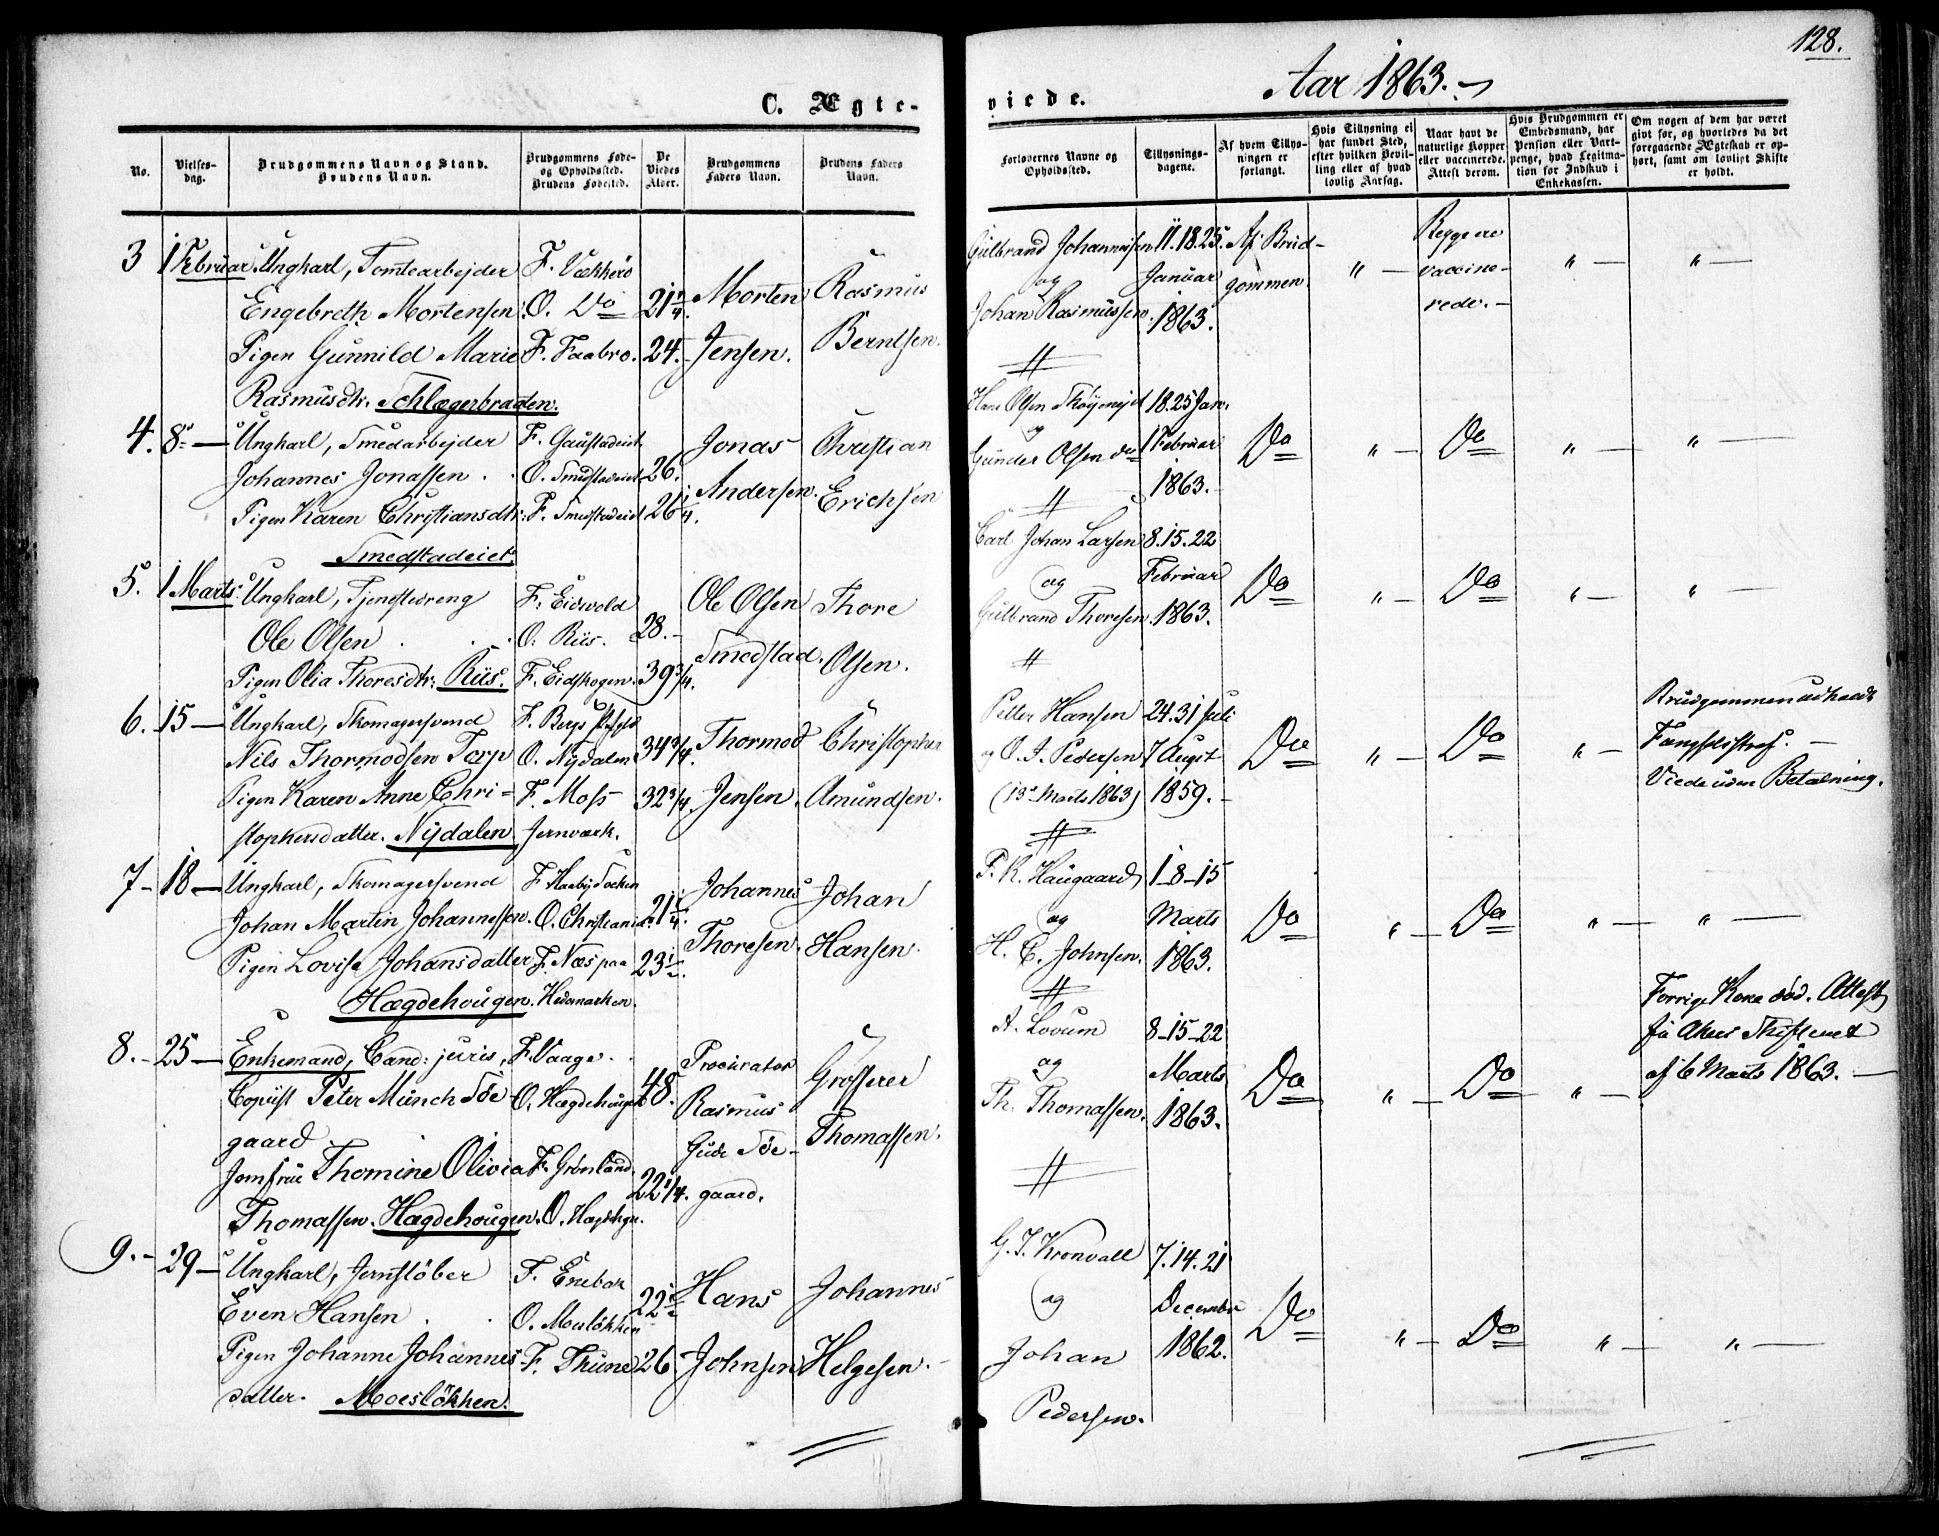 128.
Aar 1863.
C. Ægte-
viede.
No.
Vielses-
dag.
Brudgommens Navn og Stand.
Brudens Navn.
Brudgommens Føde-
og Opholdssted.
Brudens Fødested.
De
Viedes
Alder.
Brudgommens
Faders Navn.
Brudens Faders
Navn.
Forlovernes Navne og
Opholdssted.
Tillysnings-
dagene.
Af hvem Tillys-
ningen er
forlangt.
Hvis Tillysning ei
har fundet Sted,
efter hvilken Bevil-
ling eller af hvad
lovlig Aarsag.
Naar havt de
naturlige Kopper
eller vaccinerede.
Attest derom.
Hvis Brudgommen er
Embedsmand, har
Pension eller Vart-
penge, hvad Legitima-
tion for Indskud i
Enkekassen.
Om nogen af dem har været
givt før, og hvorledes da det
foregaaende Ægteskab er op-
hørt, samt om lovligt Skifte
er holdt.
3 1 Februar. Ungkarl, Tomtearbejder F. Vækkerø
Engebreth Mortensen O. Do 21 1/4. Morten Rasmus
Pigen Gunnild Marie F. Faabro. 24. Jensen. Berntsen.
Rasmusdtr.
Gulbrand Johannesen 11.18.25. Af Brud-
og Januar gommen
Johan Rasmussen. 1863.
Begge ere
vaccine-
rede.
4. 8 Ungkarl, Smedarbejder F. Gaustadeiet
Johannes Jonassen. O. Smedstadeiet 26. Jonas Christian
Pigen Karen Christiansdtr. F. Smedstadeiet 26 1/4. Andersen. Erichsen
Smedstadeiet.
Hans Olsen 18.25 Jan.
og 1 Februar Do " Do " "
Gunder Olsen do 1863.
5. 1 Marts. Ungkarl, Tjenestedreng F. Eidsvold
Ole Olsen O. Riis. 28. Ole Olsen Thore
Pigen Olia Thoresdtr. Riis. F. Eidskogen. 39 3/4. Smedstad. Olsen.
Carl Johan Larsen 8.15.22
og Februar Do " Do " "
Gulbrand Thoresen. 1863.
6. 15 Ungkarl, Skomagersvend F. Bergs
Nils Thormodsen Torp O. Nydalen 34 3/4. Thormod Christopher
Pigen Karen Anne Chri- F. Moss 32 3/4 Jensen. Amundsen.
stophersdatter. Nydalen Jernværk.
Petter Hansen 24.31 Juli
og O. A. Pedersen 7 August Do " Do "
(13 Marts 1863) 1859.
Brudgommen udstaaet
Viede uden Betalning.
7 18 Ungkarl, Skomagersvend F.
Johan Martin Johannessen. O. Christiania. 21 1/4. Johannes Johan
Pigen Lovise Johansdatter F. Næs paa 23 1/2. Thoresen. Hansen.
Hægdehougen. Hedemarken.
P. K. Haugaard 1-8-15
og Marts Do " Do " "
H. C. Johnsen. 1863.
8. 25 Enkemand, Cand: juris, F. Vaage.
Copiist Peter Munch Søe- O. Hægdehougen 48. Procurator Grosserer
gaard Rasmus Thomassen.
Jomfrue Thomine Olivia F. Grønland. 22 1/4. Gude Søe-
Thomassen. Hægdehougen. O. gaard.
A. Lovum 8-15-22
og Marts Do " Do "
Th. Thomassen. 1863.
Forrige Kone død. Attest
fra Akers Skifteret
af 6 Marts 1863.
9. 29 Ungkarl, Jernstøber F. Enebak
Even Hansen O. Moesløkken 22 1/2 Hans Johannes
Pigen Johanne Johannes- F. Thune 26. Johnsen Helgesen.
datter. Moesløkken.
G. J. Kronvall 7.14.21
og December Do " Do " "
Johan 1862.
Pedersen.